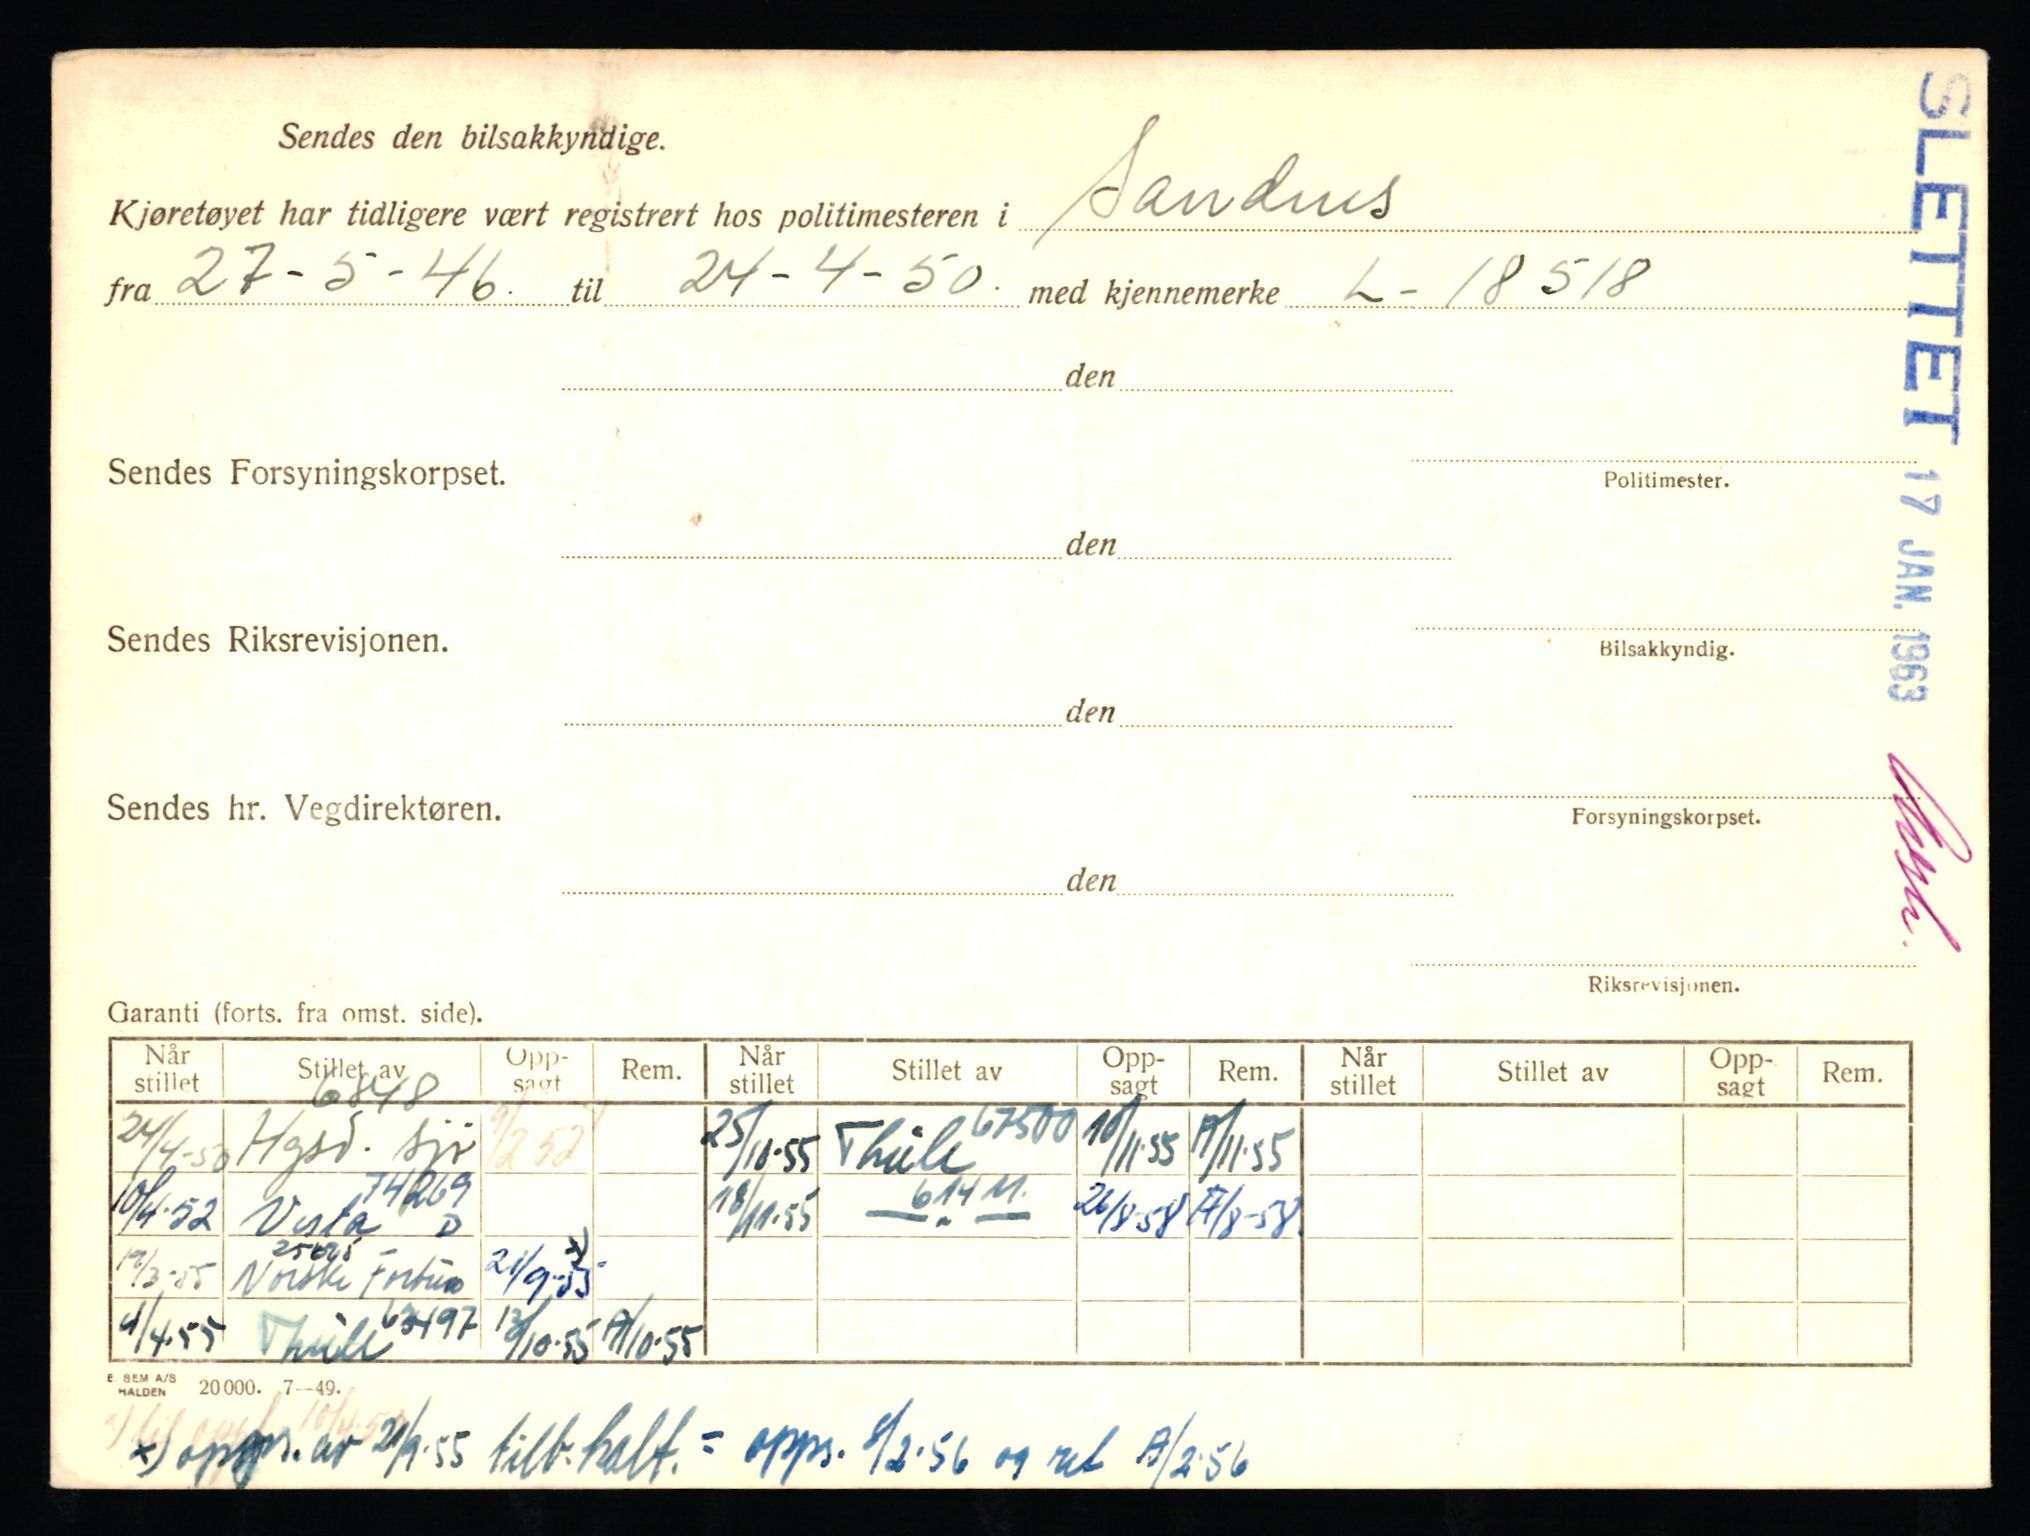 Sendes den bilsakkyndige.
Kjøretøyet har tidligere vært registrert hos politimesteren i Sandnes
fra 27-5-46. til 24-4-50. med kjennemerke L-18518
den
Politimester.
Sendes Forsyningskorpset.
den
Bilsakkyndig.
Sendes Riksrevisjonen.
den
Forsyningskorpset.
Sendes hr. Vegdirektøren.
den
Riksrevisjonen.
SLETTET 17 JAN. 1963
Garanti (forts. fra omst. side).
Når stillet Stillet av Opp-sagt Rem. Når stillet Stillet av Opp-sagt Rem. Når stillet Stillet av Opp-sagt Rem.
6848
24/4-50 Hgsd. sjø 9/2 52 25/10-55 Thule 67500 10/11.55 A/11.55
74269
10/4-52 Vesta D 18/11.55 — " — 614 M. 26/8-58 A/8-58.
Norske Fortuna 21/9-55 x)
/4.55 Thule 63497 /10.55 A/10.55
E. SEM A/S
HALDEN 20000. 7—49.
x) opps. av 21/9.55 tilb.kalt. = opps. /2.56 og ret A/2.56